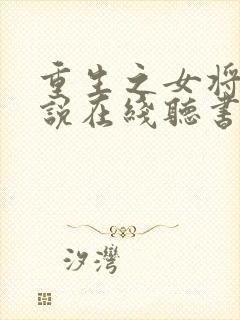 重生之女将
说在线聽書
汐灣